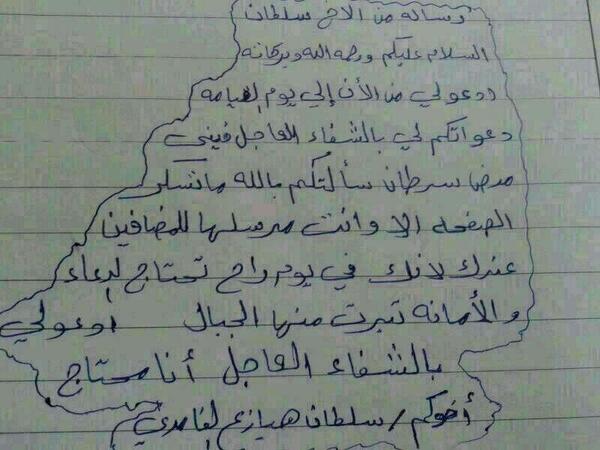 رساله من الاخ سلطان
السلام عليكم ورحمة الله وبركاته
ادعولي من الأن إلي يوم القيامه
دعواتكم لي بالشفاء العاجل فيني
مرض سرطان سألتكم بالله ماتسكر
الصفحه الا وانت مرسلها للمضافين
عندك لانك في يوم راح تحتاج لدعاء
والأمانه تبرت منها الجبال ادعولي
بالشفاء العاجل أنا محتاج
أخوكم / سلطان هيازع الغامدي